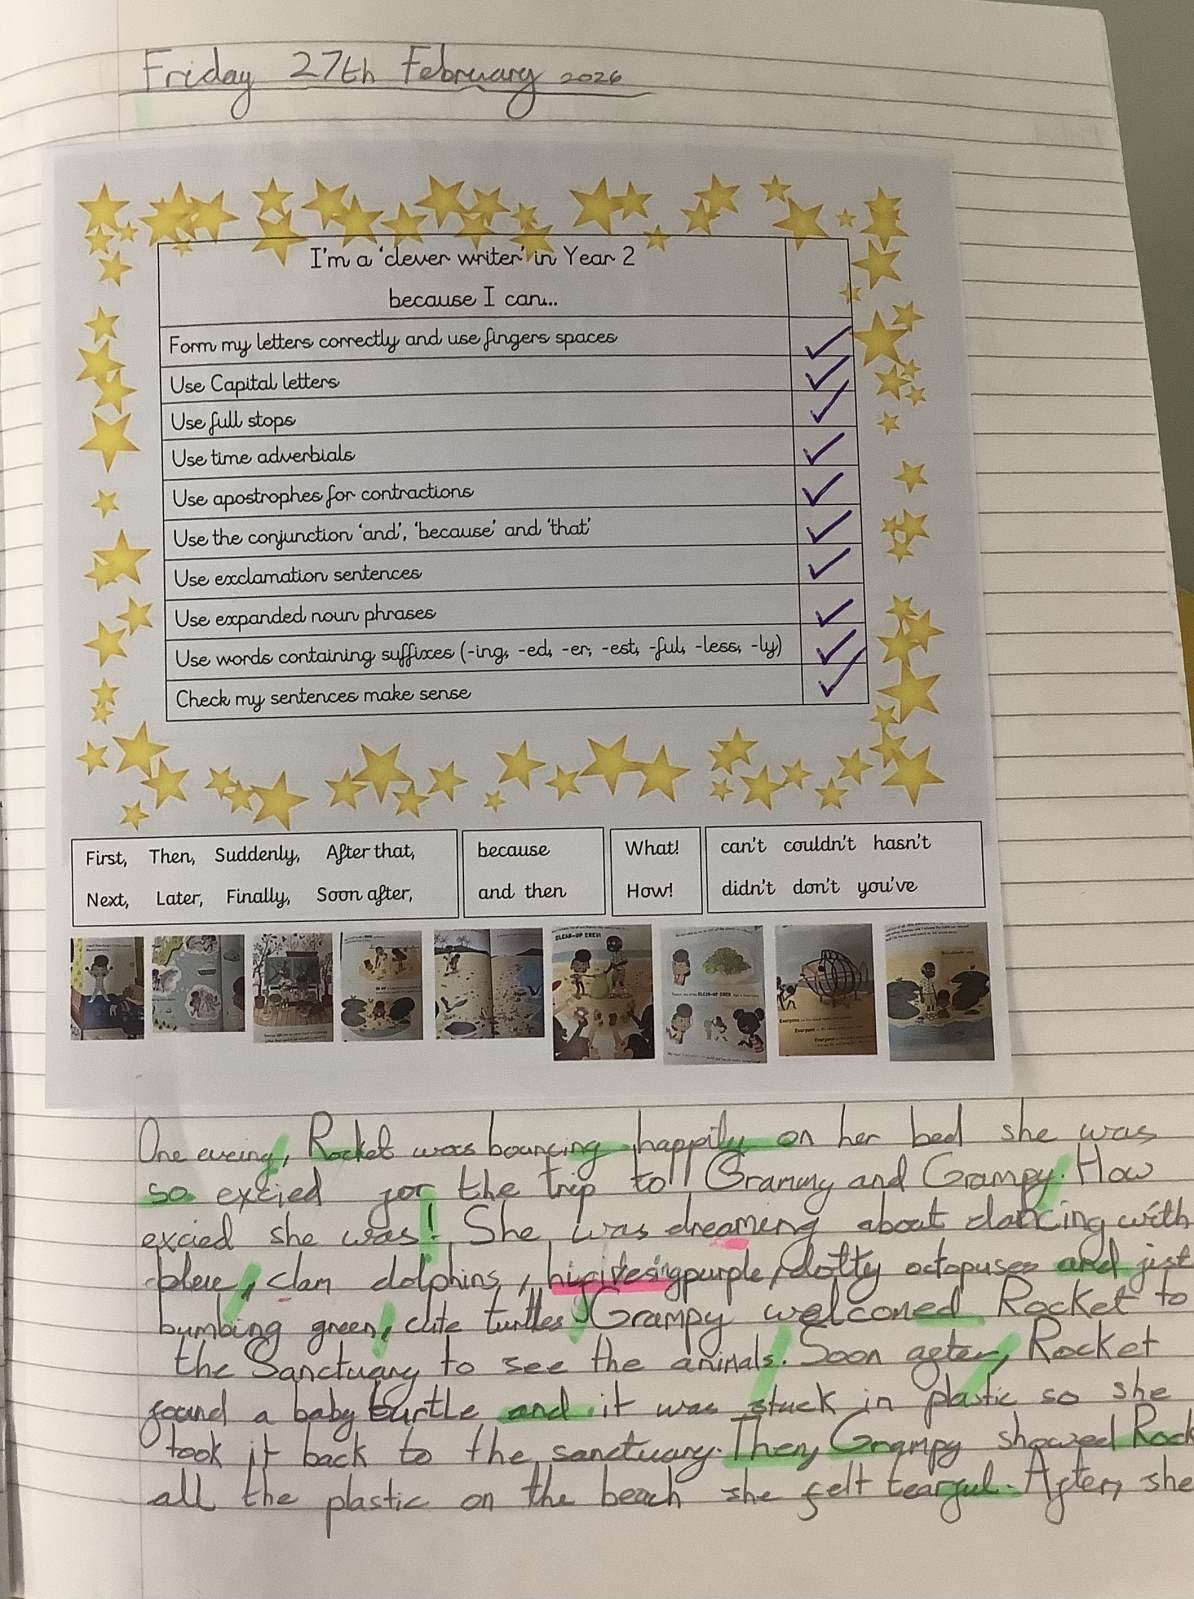 Friday 27th February 2026
I'm a 'clever writer' in Year 2
because I can...
Form my letters correctly and use fingers spaces
Use Capital letters
Use full stops
Use time adverbials
Use apostrophes for contractions
Use the conjunction 'and', 'because' and 'that'
Use exclamation sentences
Use expanded noun phrases
Use words containing suffixes (-ing, -ed, -er, -est, -ful, -less, -ly)
Check my sentences make sense
First, Then, Suddenly, After that,
Next, Later, Finally, Soon after,
because
and then
What!
How!
can't couldn't hasn't
didn't don't you've
CLEAN-UP CREW
One eveing, Rocket was bouncing happily on her bed she was
so excied for the trip to Grammy and Grampy. How
excied she was! She was dreameng about dancing with
bleue, clam dolphins, purple, dotty octopuses and just
bumbing green, cute turtles. Grampy welcomed Rocket to
the Sanctuary to see the animals. Soon after, Rocket
found a baby turtle and it was stuck in plastic so she
took it back to the sanctuary. Then, Grampy showed Rock
all the plastic on the beach she felt tearful. After, she